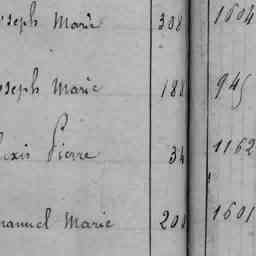 oseph Marie 308 1604
oseph Marie 188 945
lexis Pierre 34 1162
manuel Marie 208 1601